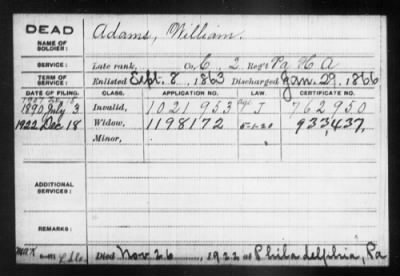 DEAD Adams, William.
NAME OF SOLDIER:
SERVICE: Late rank, Co. C, 2 Reg't Pa H A
TERM OF SERVICE: Enlisted Sept. 8, 1863 Discharged Jan. 29, 1866
DATE OF FILING. CLASS. APPLICATION NO. LAW. CERTIFICATE NO.
1890 July 3 Invalid, 1021953 J 762950
1922 Dec 18 Widow, 1198172 5-1-20 933,437.
Minor,
ADDITIONAL SERVICES:
REMARKS:
Died Nov. 26, 1922 at Philadelphia, Pa